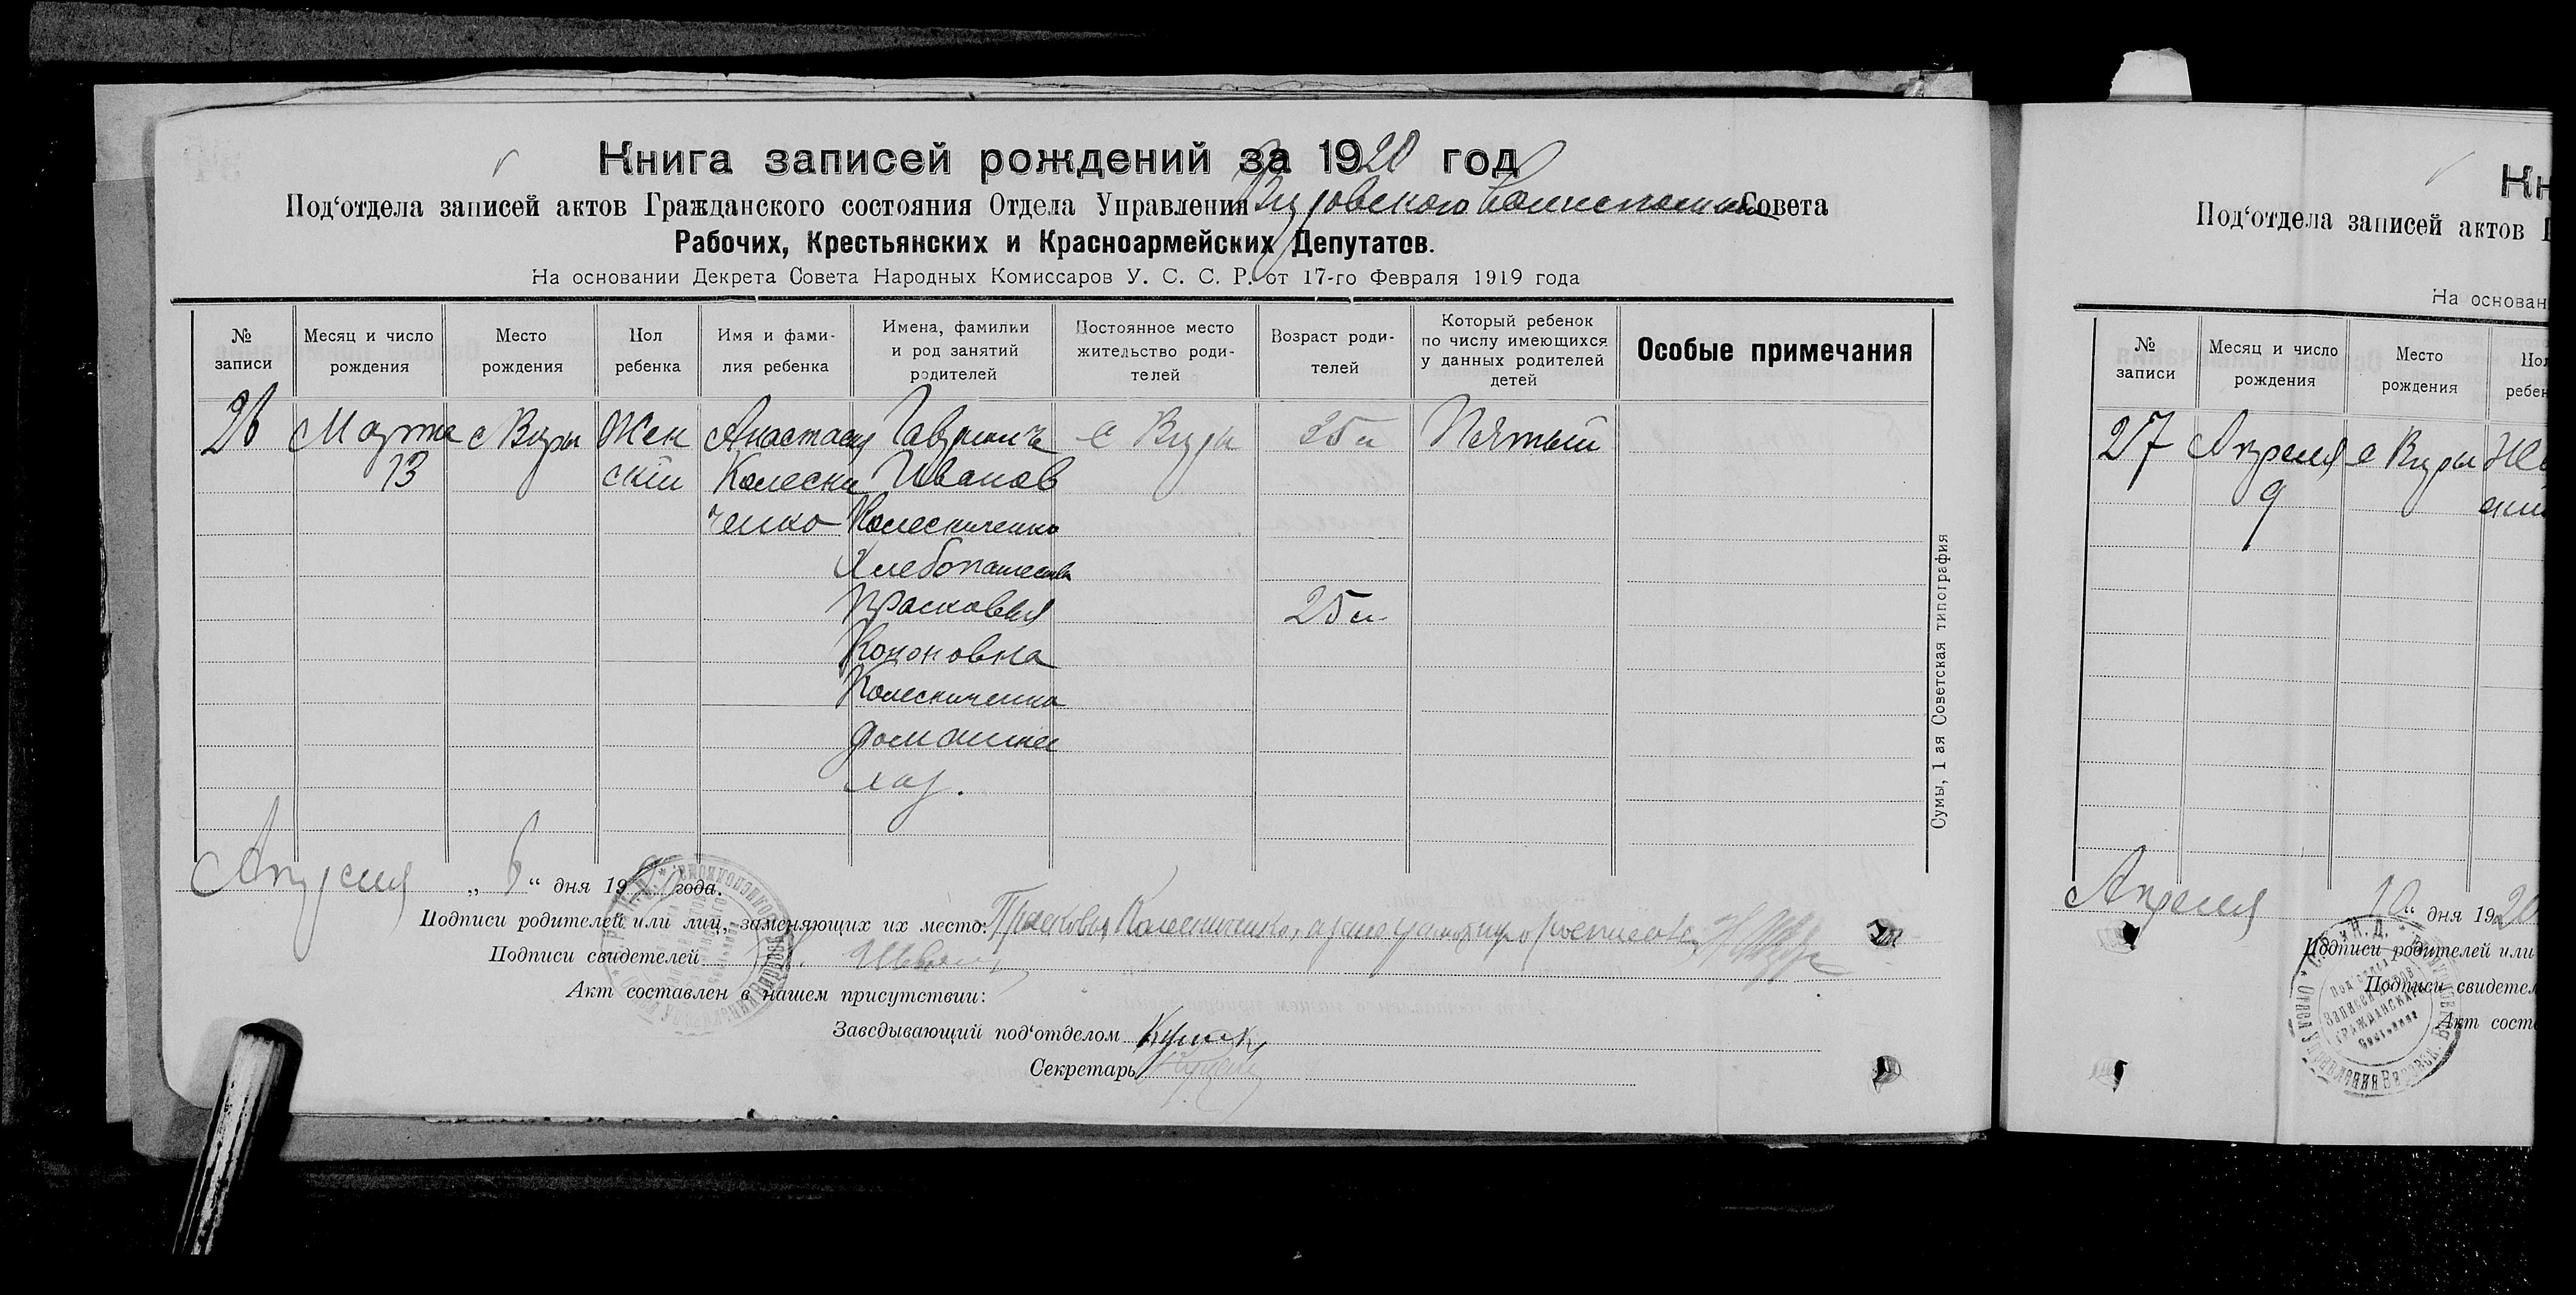 Книга записей рождений за 1920 год
Под‘отдела записей актов Гражданского состояния Отдела Управления Вировского Совета
Рабочих, Крестьянских и Красноармейских Депутатов.
На основании Декрета Совета Народных Комиссаров У. С. С. Р. от 17-го Февраля 1919 года
№ записи
Месяц и число рождения
Место рождения
Пол ребенка
Имя и фами-
лия ребенка
Имена, фамилии
и род занятий
родителей
Постоянное место
жительство роди-
телей
Возраст роди-
телей
Который ребенок
по числу имеющихся
у данных родителей
детей
Особые примечания
26 Марта с Виры Жен Анастасия Гавриил с Виры 25 л Пятый
13 скій Колесни Иванов
ченко Колесниченко
Хлебопашест
Прасковья 25 л.
Кононовна
Колесниченко
домашнее
хоз.
Апреля „ 6 “ дня 1920 года.
Подписи родителей или лиц, заменяющих их место: Прасковья Колесниченко, а
Подписи свидетелей
Акт составлен в нашем присутствии:
Заведывающий под‘отделом
Секретарь
Сумы, 1 ая Советская типография
Кн
Под‘отдела записей актов Г
На основан
№ записи
Месяц и число рождения
Место рождения
Пол
ребен
27 Апреля с Виры Же
9
Апреля 10 “ дня 1920
Подписи родителей или
Подписи свидетел
Акт соста
Под‘отдел
Записей актов
Гражданскаго
Состояния